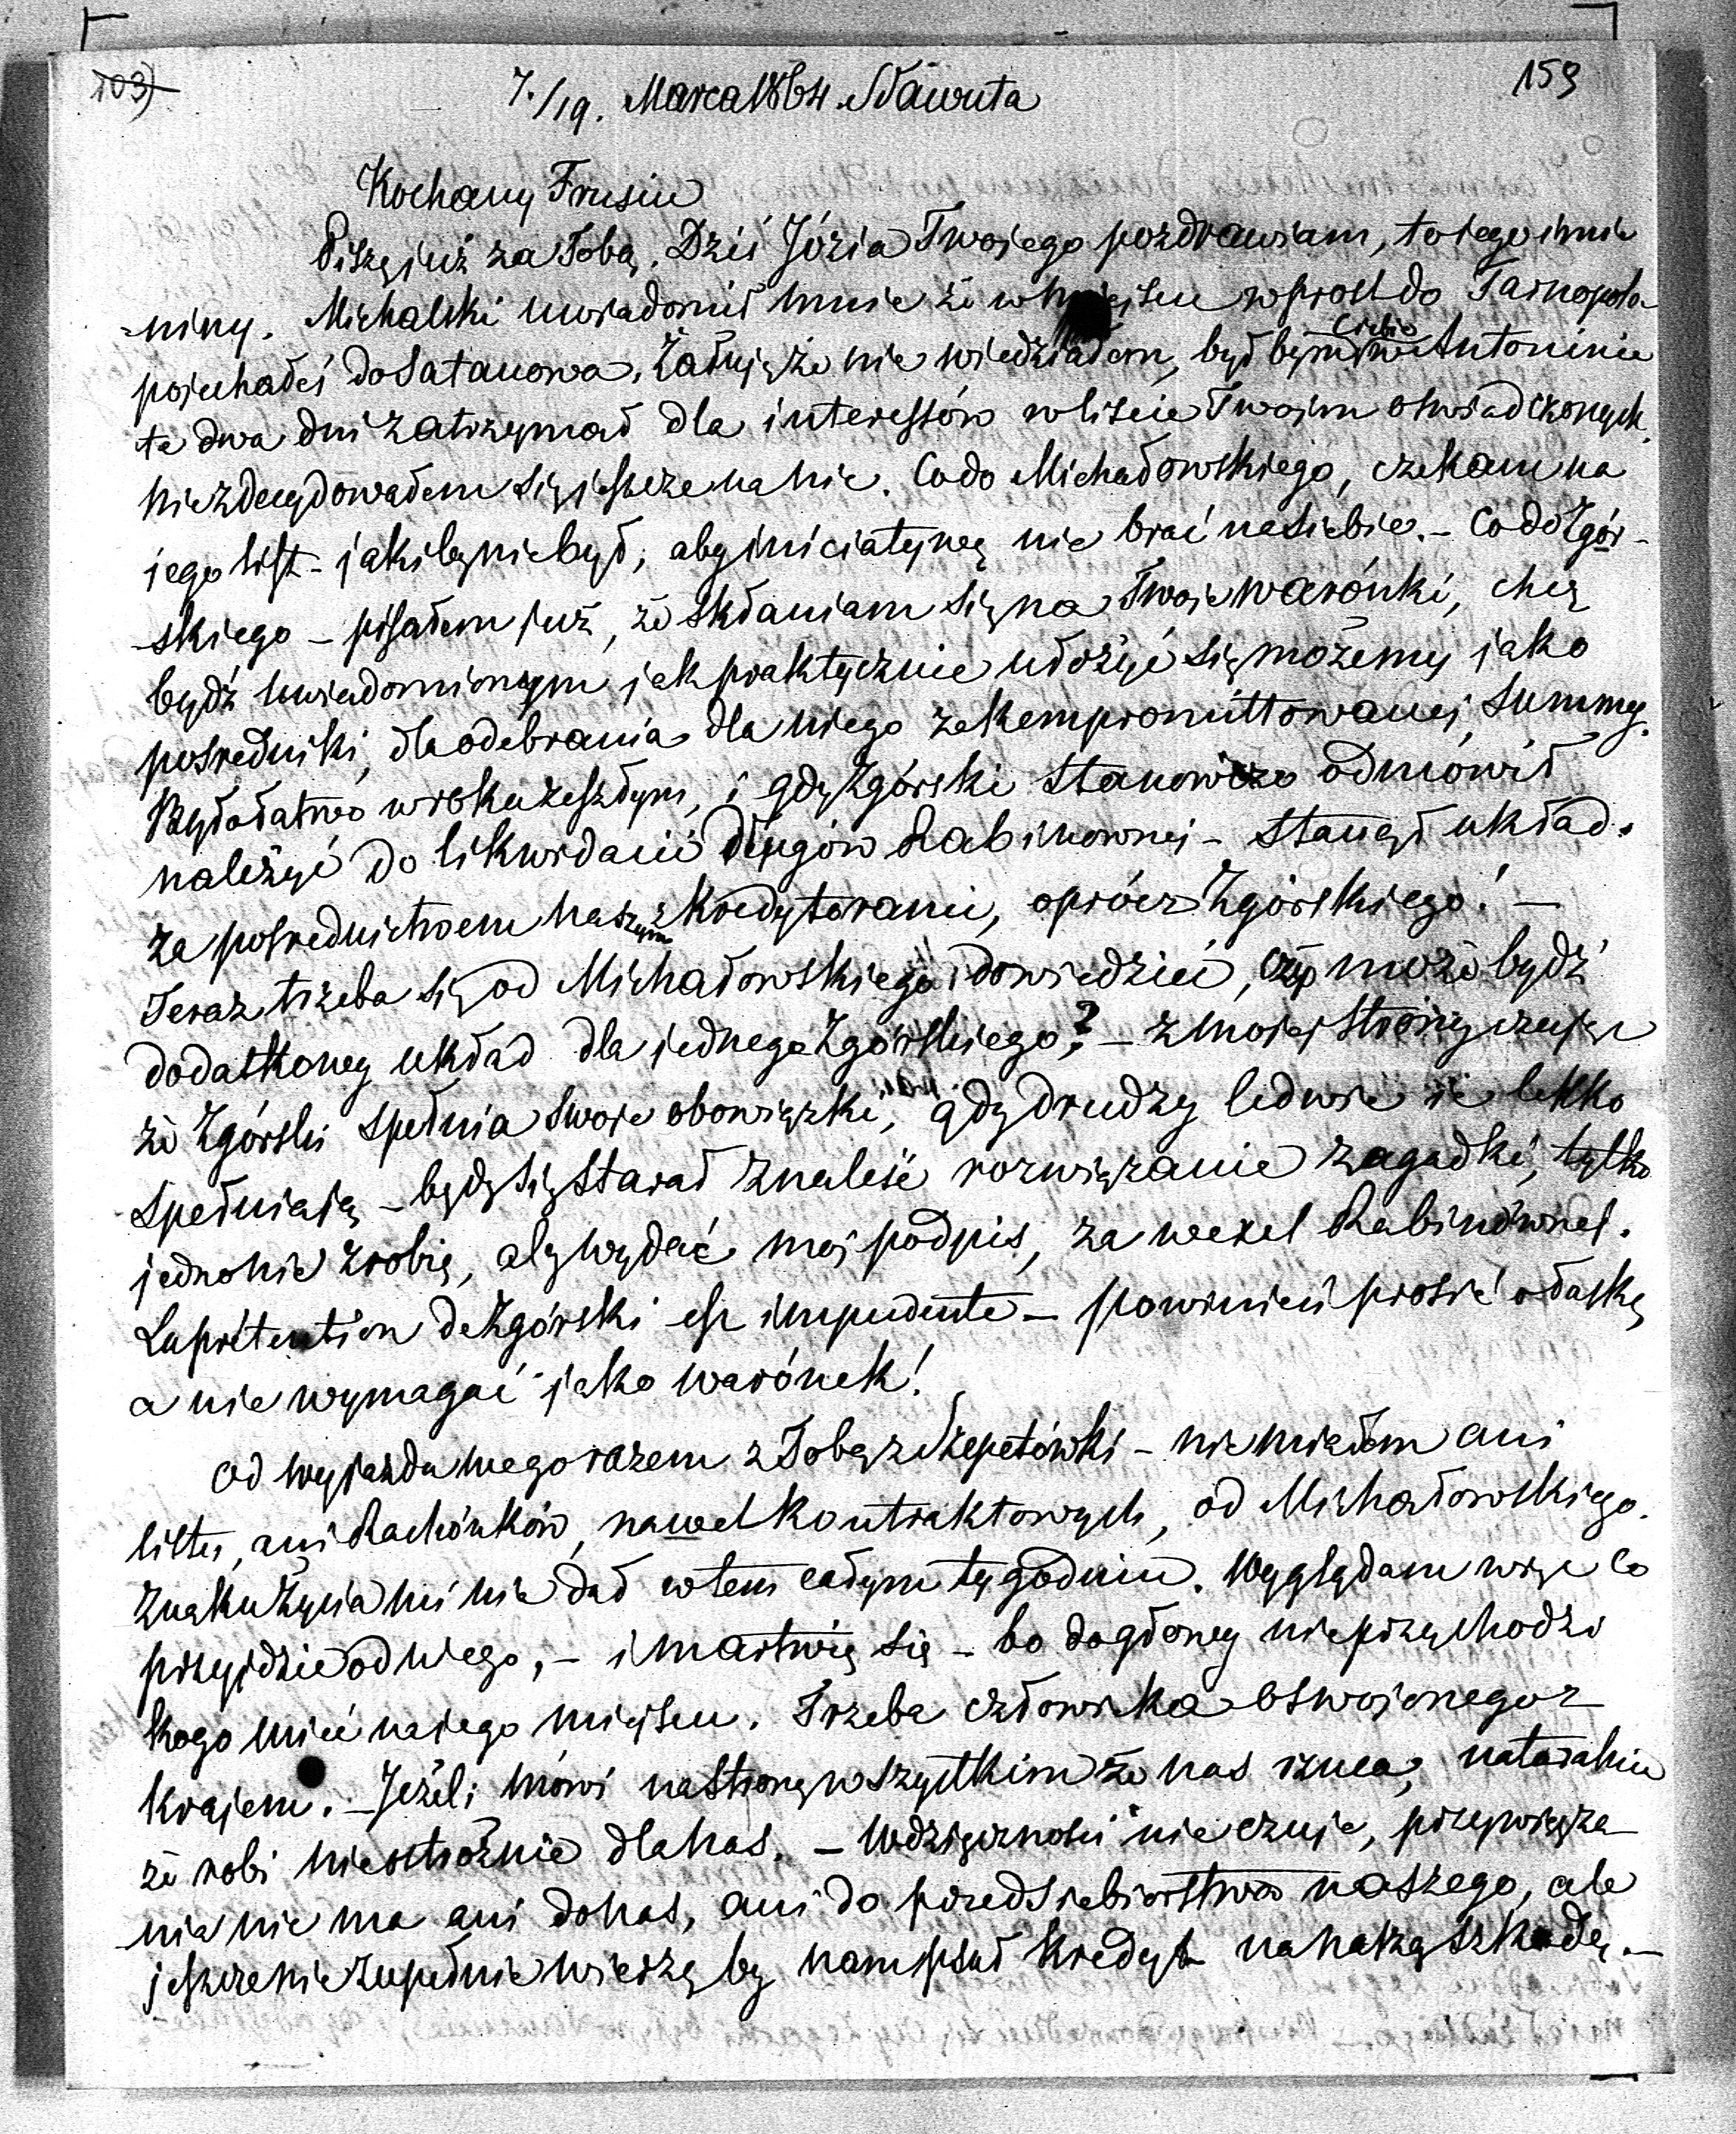 103)
159
7./19. Marca 1864. Sławuta
Kochany Frusiu
Piszę już za Tobą. Dziś Józia Twojego pozdrawiam, to jego imie
-niny. Michalski uwiadomił mnie że w miejscu wprost do Tarnopola
pojechałeś do Satanowa. Żałuję że nie wiedziałem, był bym Ciebie w Antoninie
te dwa dni zatrzymał dla interessów w liście Twoim oświadczonych.
nie zdecydowałem się jeszcze na nic. Co do Michałowskiego, czekam na
jego list - jaki by nie był, aby iniciatywę nie brać na siebie. - Co do Zgór-
-skiego - pisałem już, że skłaniam się na Twoje warónki, chcę
bydź uwiadomionym jak praktycznie ułożyć się możemy jako
pośredniki, dla odebrania dla niego zakompromittowanej summy.
Było łatwo w roku zeszłym, i gdy Zgórski stanowczo odmówił
należyć do likwidacii długów Rabinownej - stanął układ.
za pośrednictwem naszym z Kredytorami, oprócz Zgórskiego! -
Teraz trzeba się od Michałowskiego dowiedzieć, czy może bydź
dodatkowy układ dla jednego Zgórskiego? - z mojej strony czując
że Zgórski spełnia swoje obowiązki, gdy drudzy ledwie że lekko
spełniają - będę się starał znaleść rozwiązanie zagadki, tylko
jedno nie zrobię, aby wydać moj podpis, za wexel Rabinównej.
La prétention de Zgórski est impudente - powinien prosić o łaskę
a nie wymagać jako warónek!
Od wyjazdu mego razem z Tobą z Szepetówki - nie miałem ani
listu, ani Rachónków, nawet kontraktowych, od Michałowskiego.
Znaku życia mi nie dał w tem całym tygodniu. Wyglądam więc co
przyjdzie od niego, - i martwię się - bo do głowy nie przychodzi
kogo mieć na jego miejscu. Trzeba człowieka oswojonego z
krajem. - Jeżeli mówi na stronę wszystkim że nas rzuca, naturalnie
że robi nieostrożnie dla nas. - Wdzięczności nie czuje, przywięza-
-nia nie ma ani do nas, ani do przedsiebiorstwa naszego, ale
jeszcze nie zupełnie wierzę by nam psuł kredyt na naszą szkodę. -